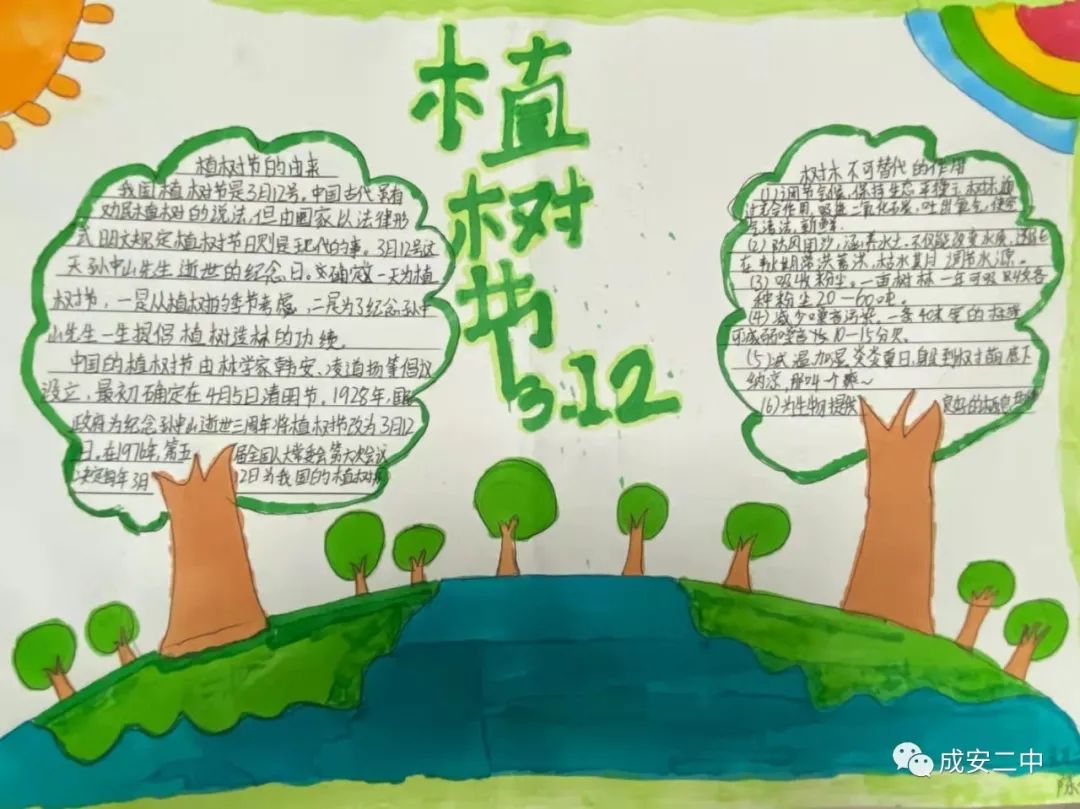 植树节
3.12
植树节的由来
我国植树节是3月12号。中国古代就有
劝民植树的说法,但由国家以法律形
式明文规定植树节日则是现代的事。3月12号这
天孙中山先生逝世的纪念日。确定这一天为植
树节,一是从植树的季节考虑,二是为了纪念孙中
山先生一生提倡植树造林的功绩。
中国的植树节由林学家韩安、凌道扬等倡议
设立,最初确定在4月5日清明节,1928年,国
政府为纪念孙中山逝世三周年将植树节改为3月12
日,在1979年,第五届全国人大常委会第六次会议
决定每年3月12日为我国的植树
树木不可替代的作用
(1)调节气候,保持生态平衡:树木通
过光合作用,吸进二氧化碳,吐出氧气,使空
气清洁,新鲜.
(2)防风固沙,涵养水土,不仅能改变水质,
在 期 洪蓄洪,枯水其月调节水源。
(3)吸收粉尘。一亩树林一年可吸收各
种粉尘20-60吨。
(4)减少噪音污染,一条40米宽的林带
可减弱噪音 10-15分贝。
(5)减温 炎炎夏日,身 到树荫底下
纳凉,那叫个爽~
(6)为生物提供 良好的栖息
成安二中